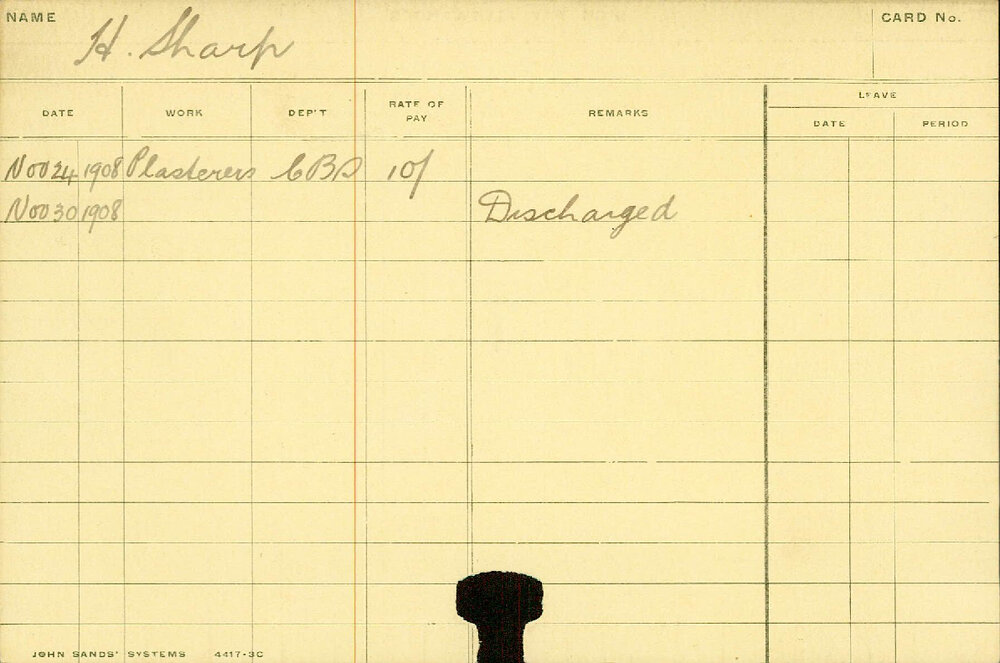 NAME
H. Sharp
CARD No.
DATE WORK DEP'T RATE OF PAY REMARKS LEAVE
DATE PERIOD
Nov 24 1908 Plasterers CBD 10/
Nov 30 1908 Discharged
JOHN SANDS' SYSTEMS 4417-3C